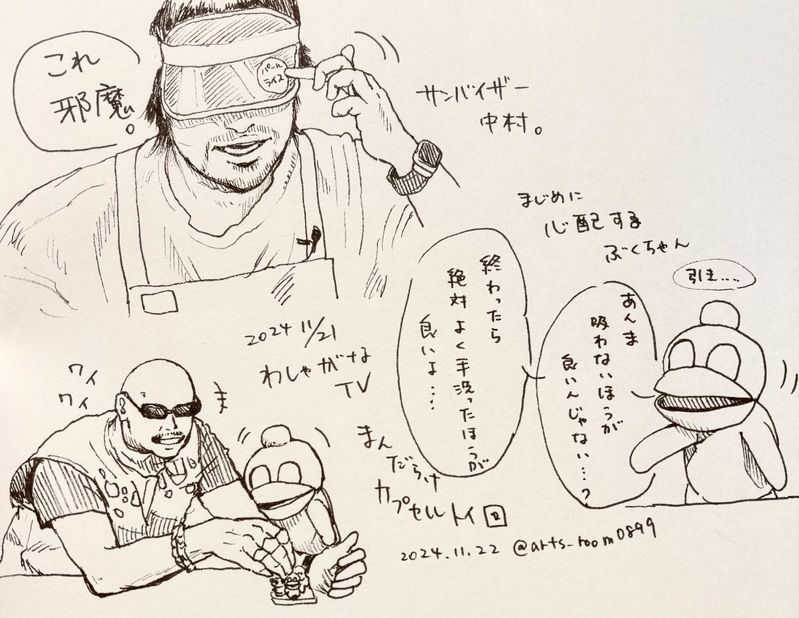 これ
邪魔。
パール
ライス
サンバイザー
中村。
まじめに
心配する
ぶくちゃん
引き....
あんま
吸わないほうが
良いんじゃない…?
終わったら
絶対よく手洗ったほうが
良いよ…
2024 11/21
わしゃがな
TV
ワイ
ワイ
まん
だらけ
カプセルトイ回
2024.11.22 @arts_room0899